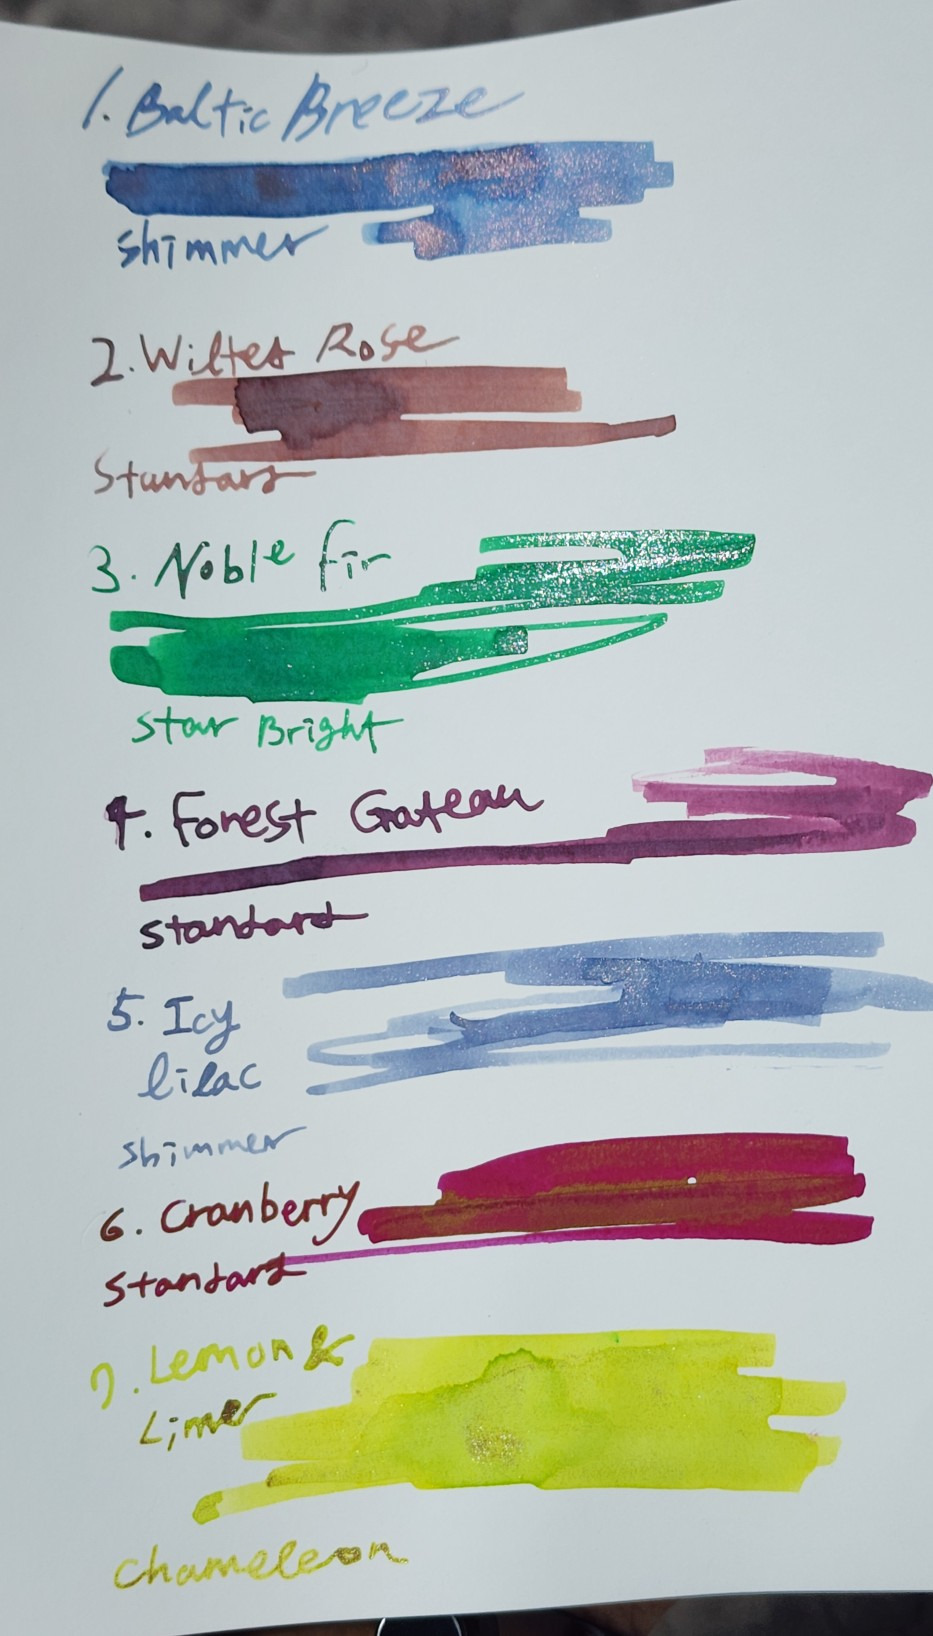 1. Baltic Breeze
shimmer
2. Wilted Rose
Standard
3. Noble fir
Star Bright
4. Forest Gateau
standard
5. Icy
lilac
shimmer
6. Cranberry
Standard
7. Lemon &
Limer
Chameleon